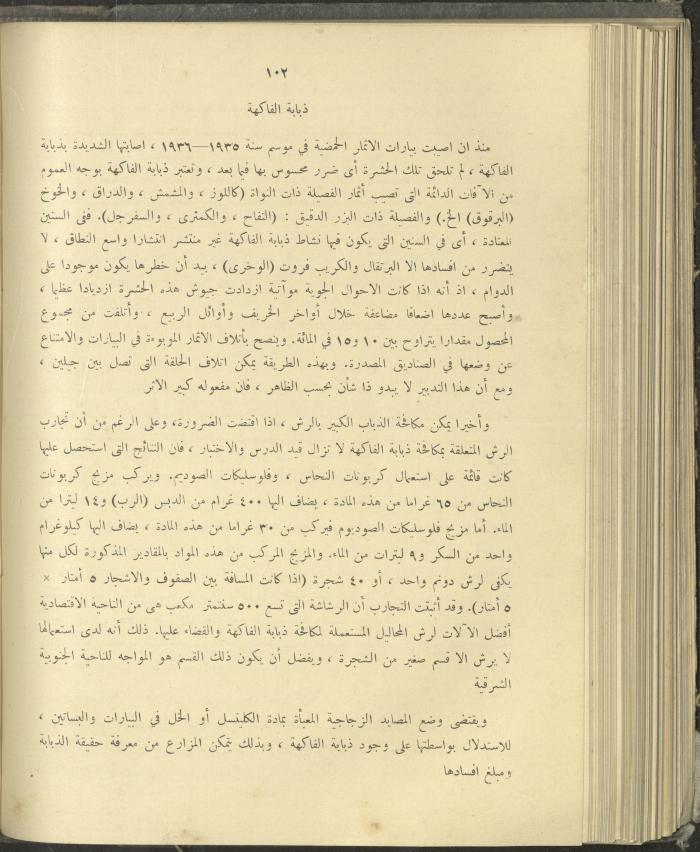 ١٠٢
ذبابة الفاكهة
منذ ان اصيبت بيارات الاثمار الحمضية في موسم سنة ١٩٣٥—١٩٣٦ ، اصابتها الشديدة بذبابة
الفاكهة ، لم تلحق تلك الحشرة أى ضرر محسوس بها فيما بعد ، وتعتبر ذبابة الفاكهة بوجه العموم
من الآفات الدائمة التى تصيب أثمار الفصيلة ذات النواة (كاللوز ، والمشمش ، والدراق ، والخوخ
(البرقوق) الخ.) والفصيلة ذات البزر الدقيق : (التفاح ، والكمثرى ، والسفرجل). ففى السنين
المعتادة ، أى في السنين التى يكون فيها نشاط ذبابة الفاكهة غير منتشر انتشارا واسع النطاق ، لا
يتضرر من افسادها الا البرتقال والكريب فروت (الوخرى) ، بيد أن خطرها يكون موجودا على
الدوام ، اذ أنه اذا كانت الاحوال الجوية موآتية ازدادت جيوش هذه الحشرة ازديادا عظيما ،
وأصبح عددها اضعافا مضاعفة خلال أواخر الخريف وأوائل الربيع ، وأتلفت من مجموع
المحصول مقدارا يتراوح بين ١٠ و١٥ في المائة. وينصح بأتلاف الاثمار الموبوءة في البيارات والامتناع
عن وضعها في الصناديق المصدرة. وبهذه الطريقة يمكن اتلاف الحلقة التى تصل بين جيلين ،
ومع أن هذا التدبير لا يبدو ذا شأن بحسب الظاهر ، فان مفعوله كبير الاثر
وأخيرا يمكن مكافحة الذباب الكبير بالرش ، اذا اقتضت الضرورة، وعلى الرغم من أن تجارب
الرش المتعلقة بمكافحة ذبابة الفاكهة لا تزال قيد الدرس والاختبار ، فان النتائج التى استحصل عليها
كانت قائمة على استعمال كربونات النحاس ، وفلوسليكات الصوديم. ويركب مزيج كربونات
النحاس من ٦٥ غراما من هذه المادة ، يضاف اليها ٤٠٠ غرام من الدبس (الرب) و١٤ ليترا من
الماء. أما مزيج فلوسليكات الصوديوم فيركب من ٣٠ غراما من هذه المادة ، يضاف اليها كيلوغرام
واحد من السكر و٩ ليترات من الماء. والمزيج المركب من هذه المواد بالمقادير المذكورة لكل منها
يكفى لرش دونم واحد ، أو ٤٠ شجرة (اذا كانت المسافة بين الصفوف والاشجار ٥ أمتار ×
٥ أمتار). وقد أثبتت التجارب أن الرشاشة التى تسع ٥٠٠ سنتمتر مكعب هى من الناحية الاقتصادية
أفضل الآلات لرش المحاليل المستعملة لمكافحة ذبابة الفاكهة والقضاء عليها. ذلك أنه لدى استعمالها
لا يرش الا قسم صغير من الشجرة ، ويفضل أن يكون ذلك القسم هو المواجه للناحية الجنوبية
الشرقية
ويقتضى وضع المصايد الزجاجية المعبأة بمادة الكلينسل أو الخل في البيارات والبساتين ،
للاستدلال بواسطتها على وجود ذبابة الفاكهة ، وبذلك يتمكن المزارع من معرفة حقيقة الذبابة
ومبلغ افسادها